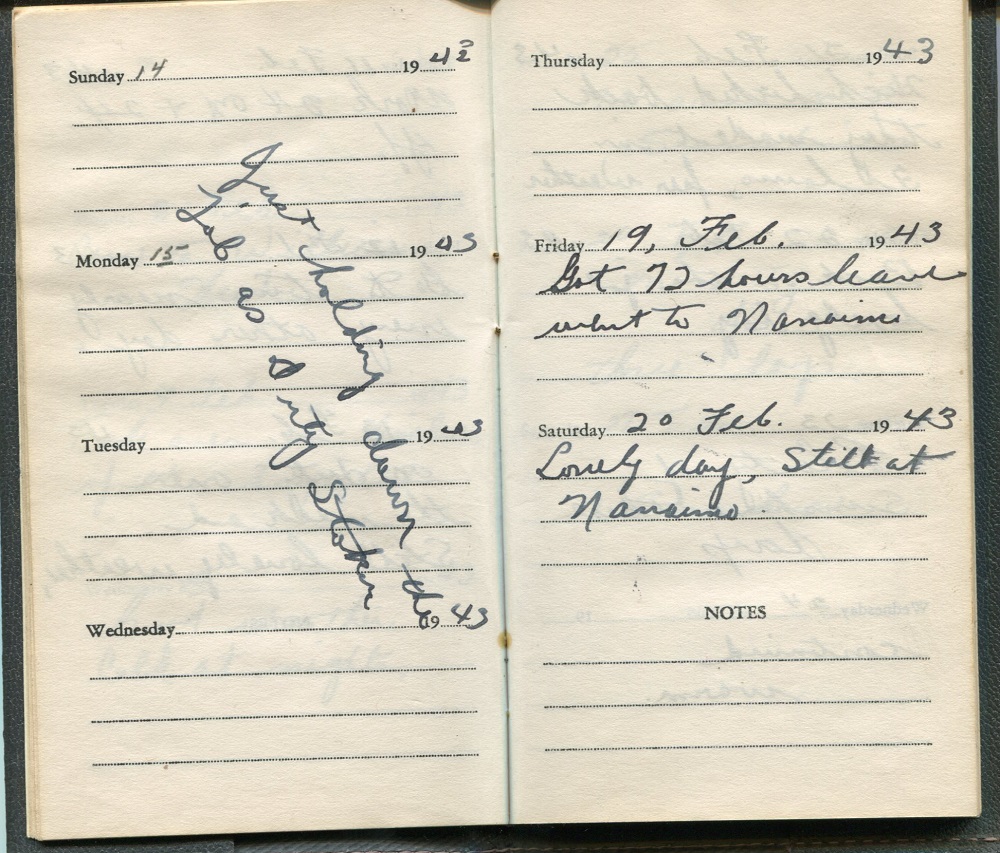 Sunday 14 1943
Monday 15 1943
Tuesday 1943
Wednesday 1943
Just holding down the
Job as Duty Stoker
Thursday 1943
Friday 19, Feb. 1943
Got 72 hours leave
went to Nanaimo
Saturday 20 Feb. 1943
Lonely day, Still at
Nanaimo.
NOTES